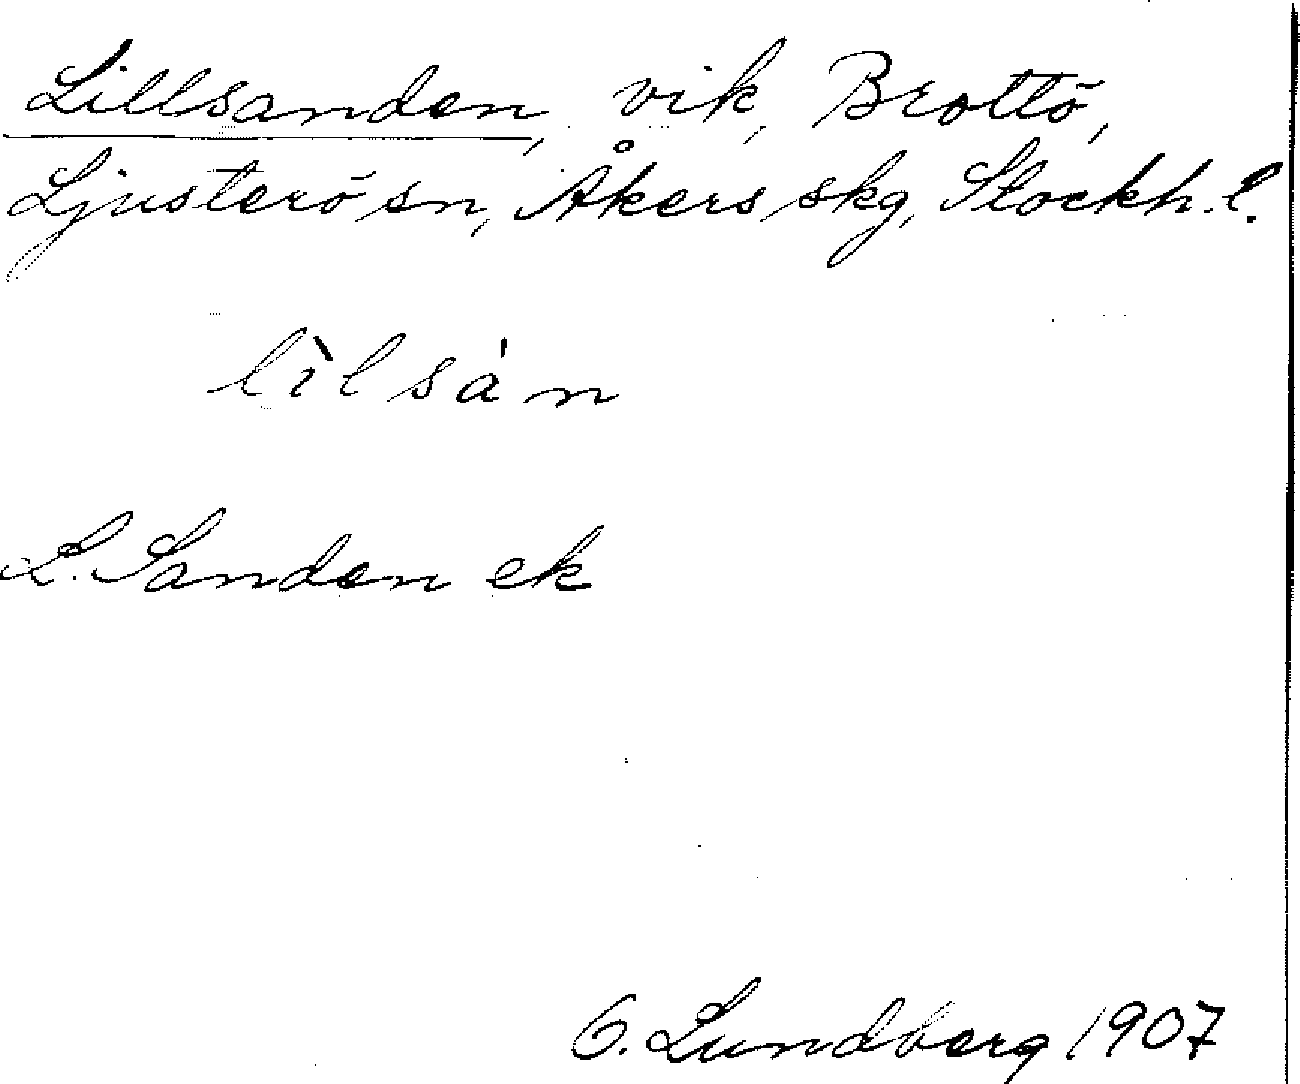 Lillsanden, vik, Brottö,
Ljusterö sn, Åkers skg, Stockh. l.
lìlsán
L. Sanden ek
O. Lundberg 1907